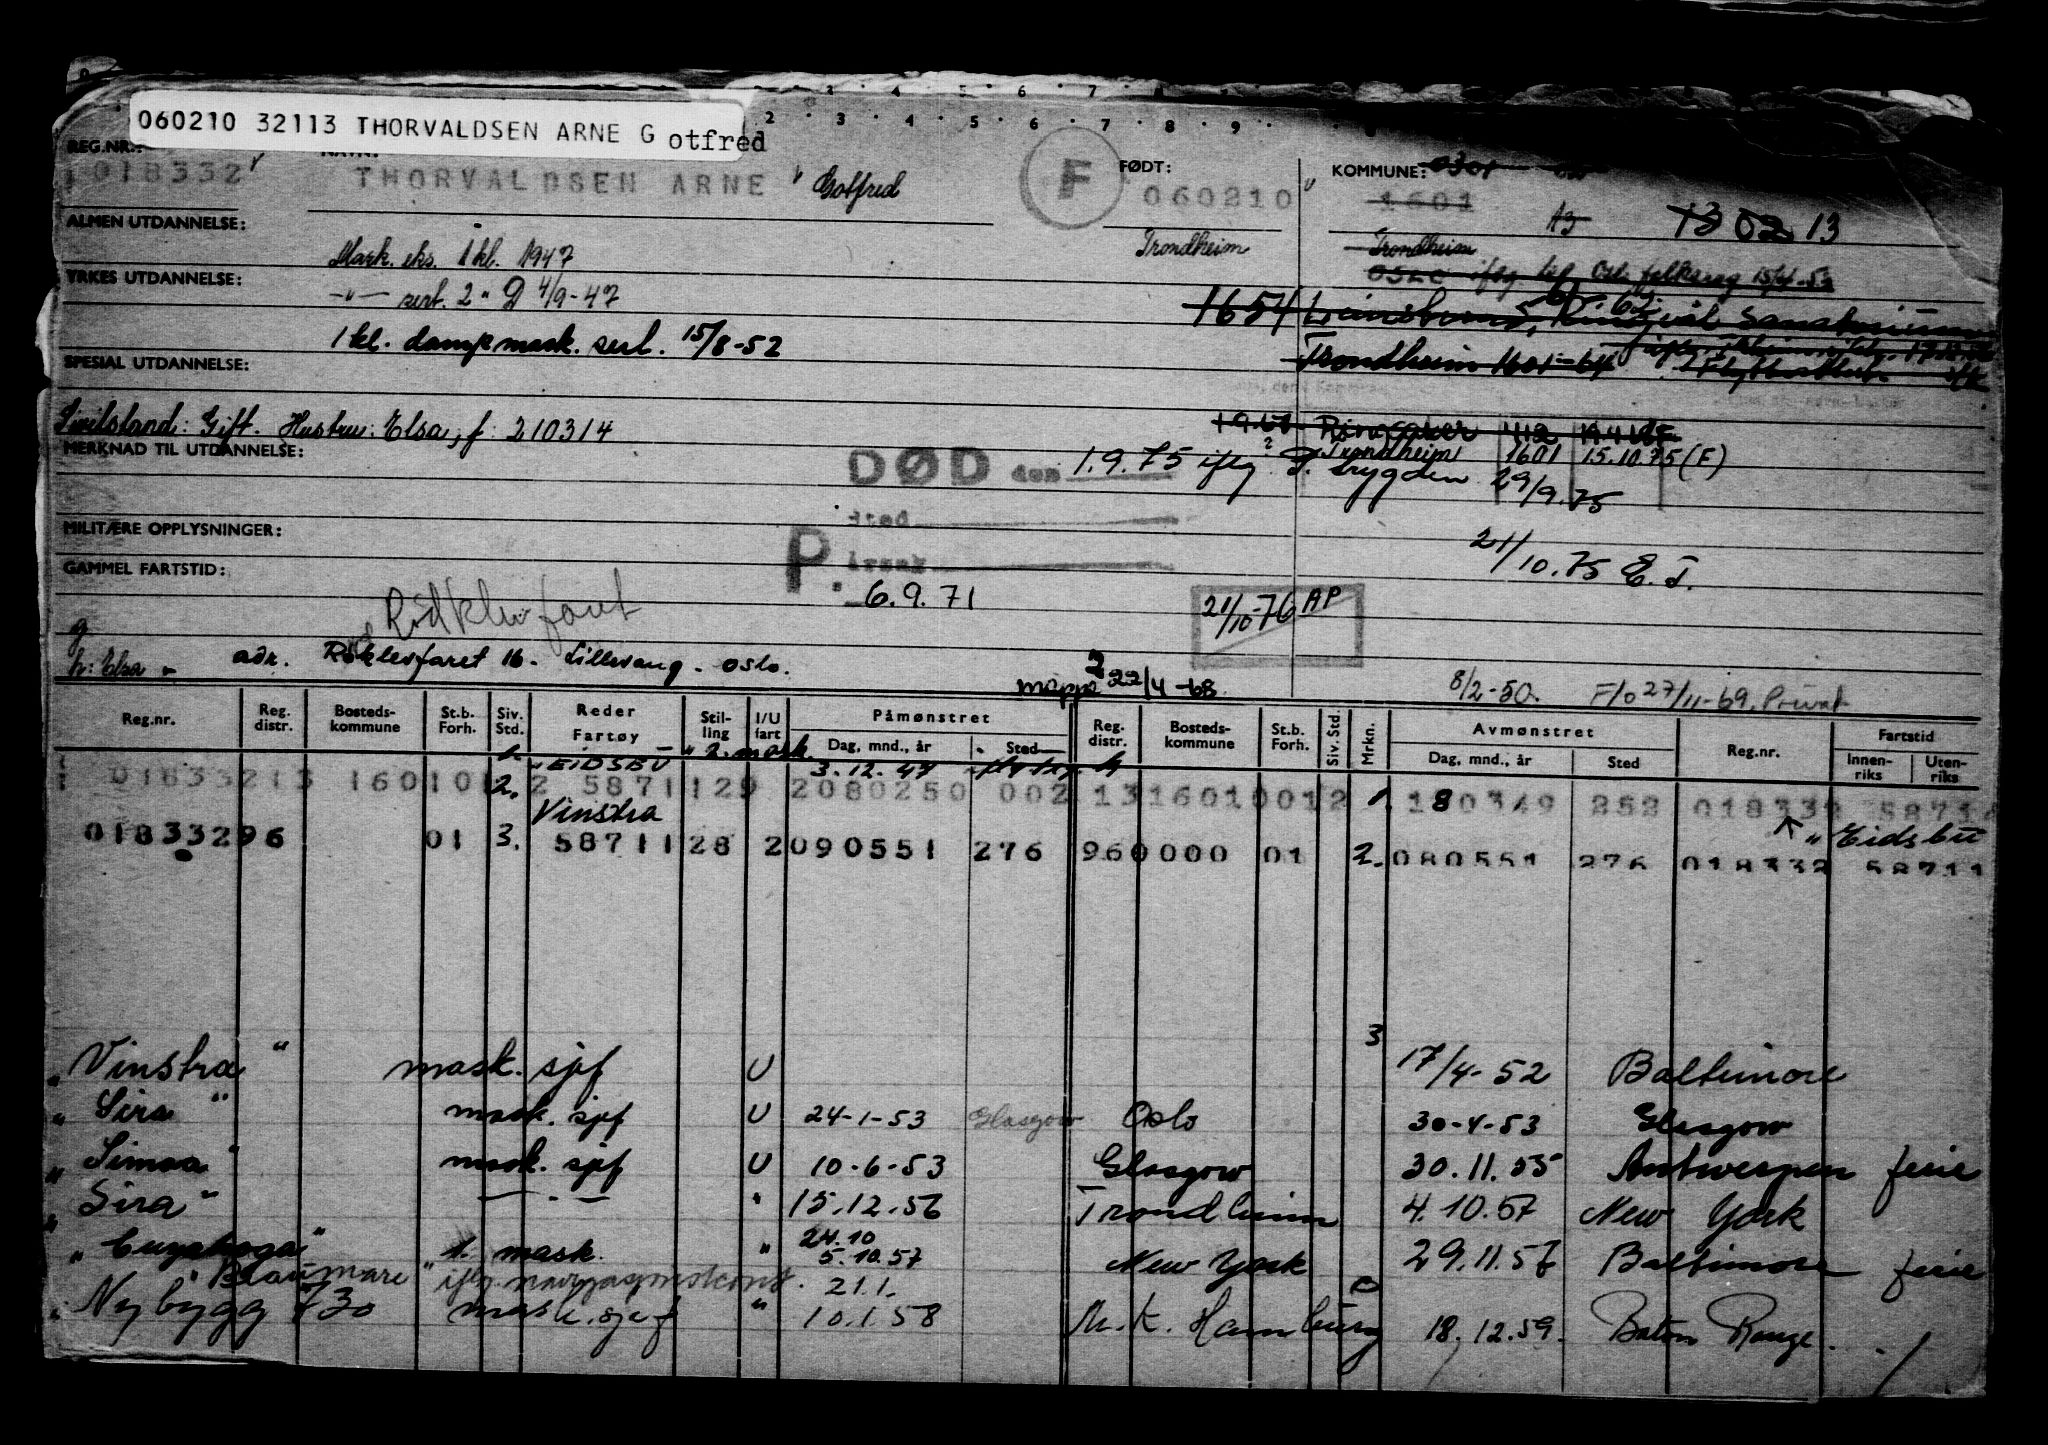 060210 32113 THORVALDSEN ARNE G otfred
REG.NR.:
NAVN:
FØDT:
KOMMUNE:
018332 THORVALDSEN ARNE Gotfred F 060210 1601
13 02 13
ALMEN UTDANNELSE:
Mask. eks. 1 kl. 1947 Trondheim Trondheim
YRKES UTDANNELSE:
sert. 2 " D 4/9-47
1654
1 kl. dampmask. sert. 15/8-52
Trondheim 1601-64
SPESIAL UTDANNELSE:
Sivilstand: Gift. Hustru: Elsa, f: 210314
Ringsaker 412
MERKNAD TIL UTDANNELSE:
Trondheim 1601 15.10.75 (F)
DØD den 1.9.75 iflg. T. trygden 29/9.75
sted
MILITÆRE OPPLYSNINGER:
P. årsak 21/10.75 E. T.
GAMMEL FARTSTID:
6.9.71 21/10-76 AP
h: Elsa adr. Röklevfaret 16. Lillevang. Oslo.
mappe 2 22/4-68 8/2-50. F/o 27/11-69. Privat
Reg.nr. Reg. distr. Bosteds-kommune St.b. Forh. Siv. Std. Reder Fartøy Stil-ling I/U fart Påmønstret Dag, mnd., år Sted Reg. distr. Bosteds-kommune St.b. Forh. Siv. Std. Mrkn. Avmønstret Dag, mnd., år Sted Reg.nr. Fartstid Innen-riks Uten-riks
1. "EIDSBU" 2. mask. 3.12.47
01833213 160101 2. 2 5871129 2080250 002 1316010012 1. 180349 252 018332 58714
Vinstra "Eidsbu
01833296 01 3. 58711 28 2090551 276 960000 01 2. 080551 276 018332 58711
3
"Vinstra" mask. sjef U 17/4-52 Baltimore
"Sira" mask. sjf U 24-1-53 Glasgow Oslo 30-4-53 Glasgow
"Simoa" mask. sjf U 10-6-53 Glasgow 30.11.55 Antwerpen ferie
"Sira" — . — " 15.12.56 Trondheim 4.10.57 New York
24.10
"Cuyahoga" 1. mask. " 5.10.57 New York 29.11.57 Baltimore ferie
21.1.
"Nybygg 730 mask. sjef " 10.1.58 M.K. Hamburg 18.12.59. Baton Rouge.